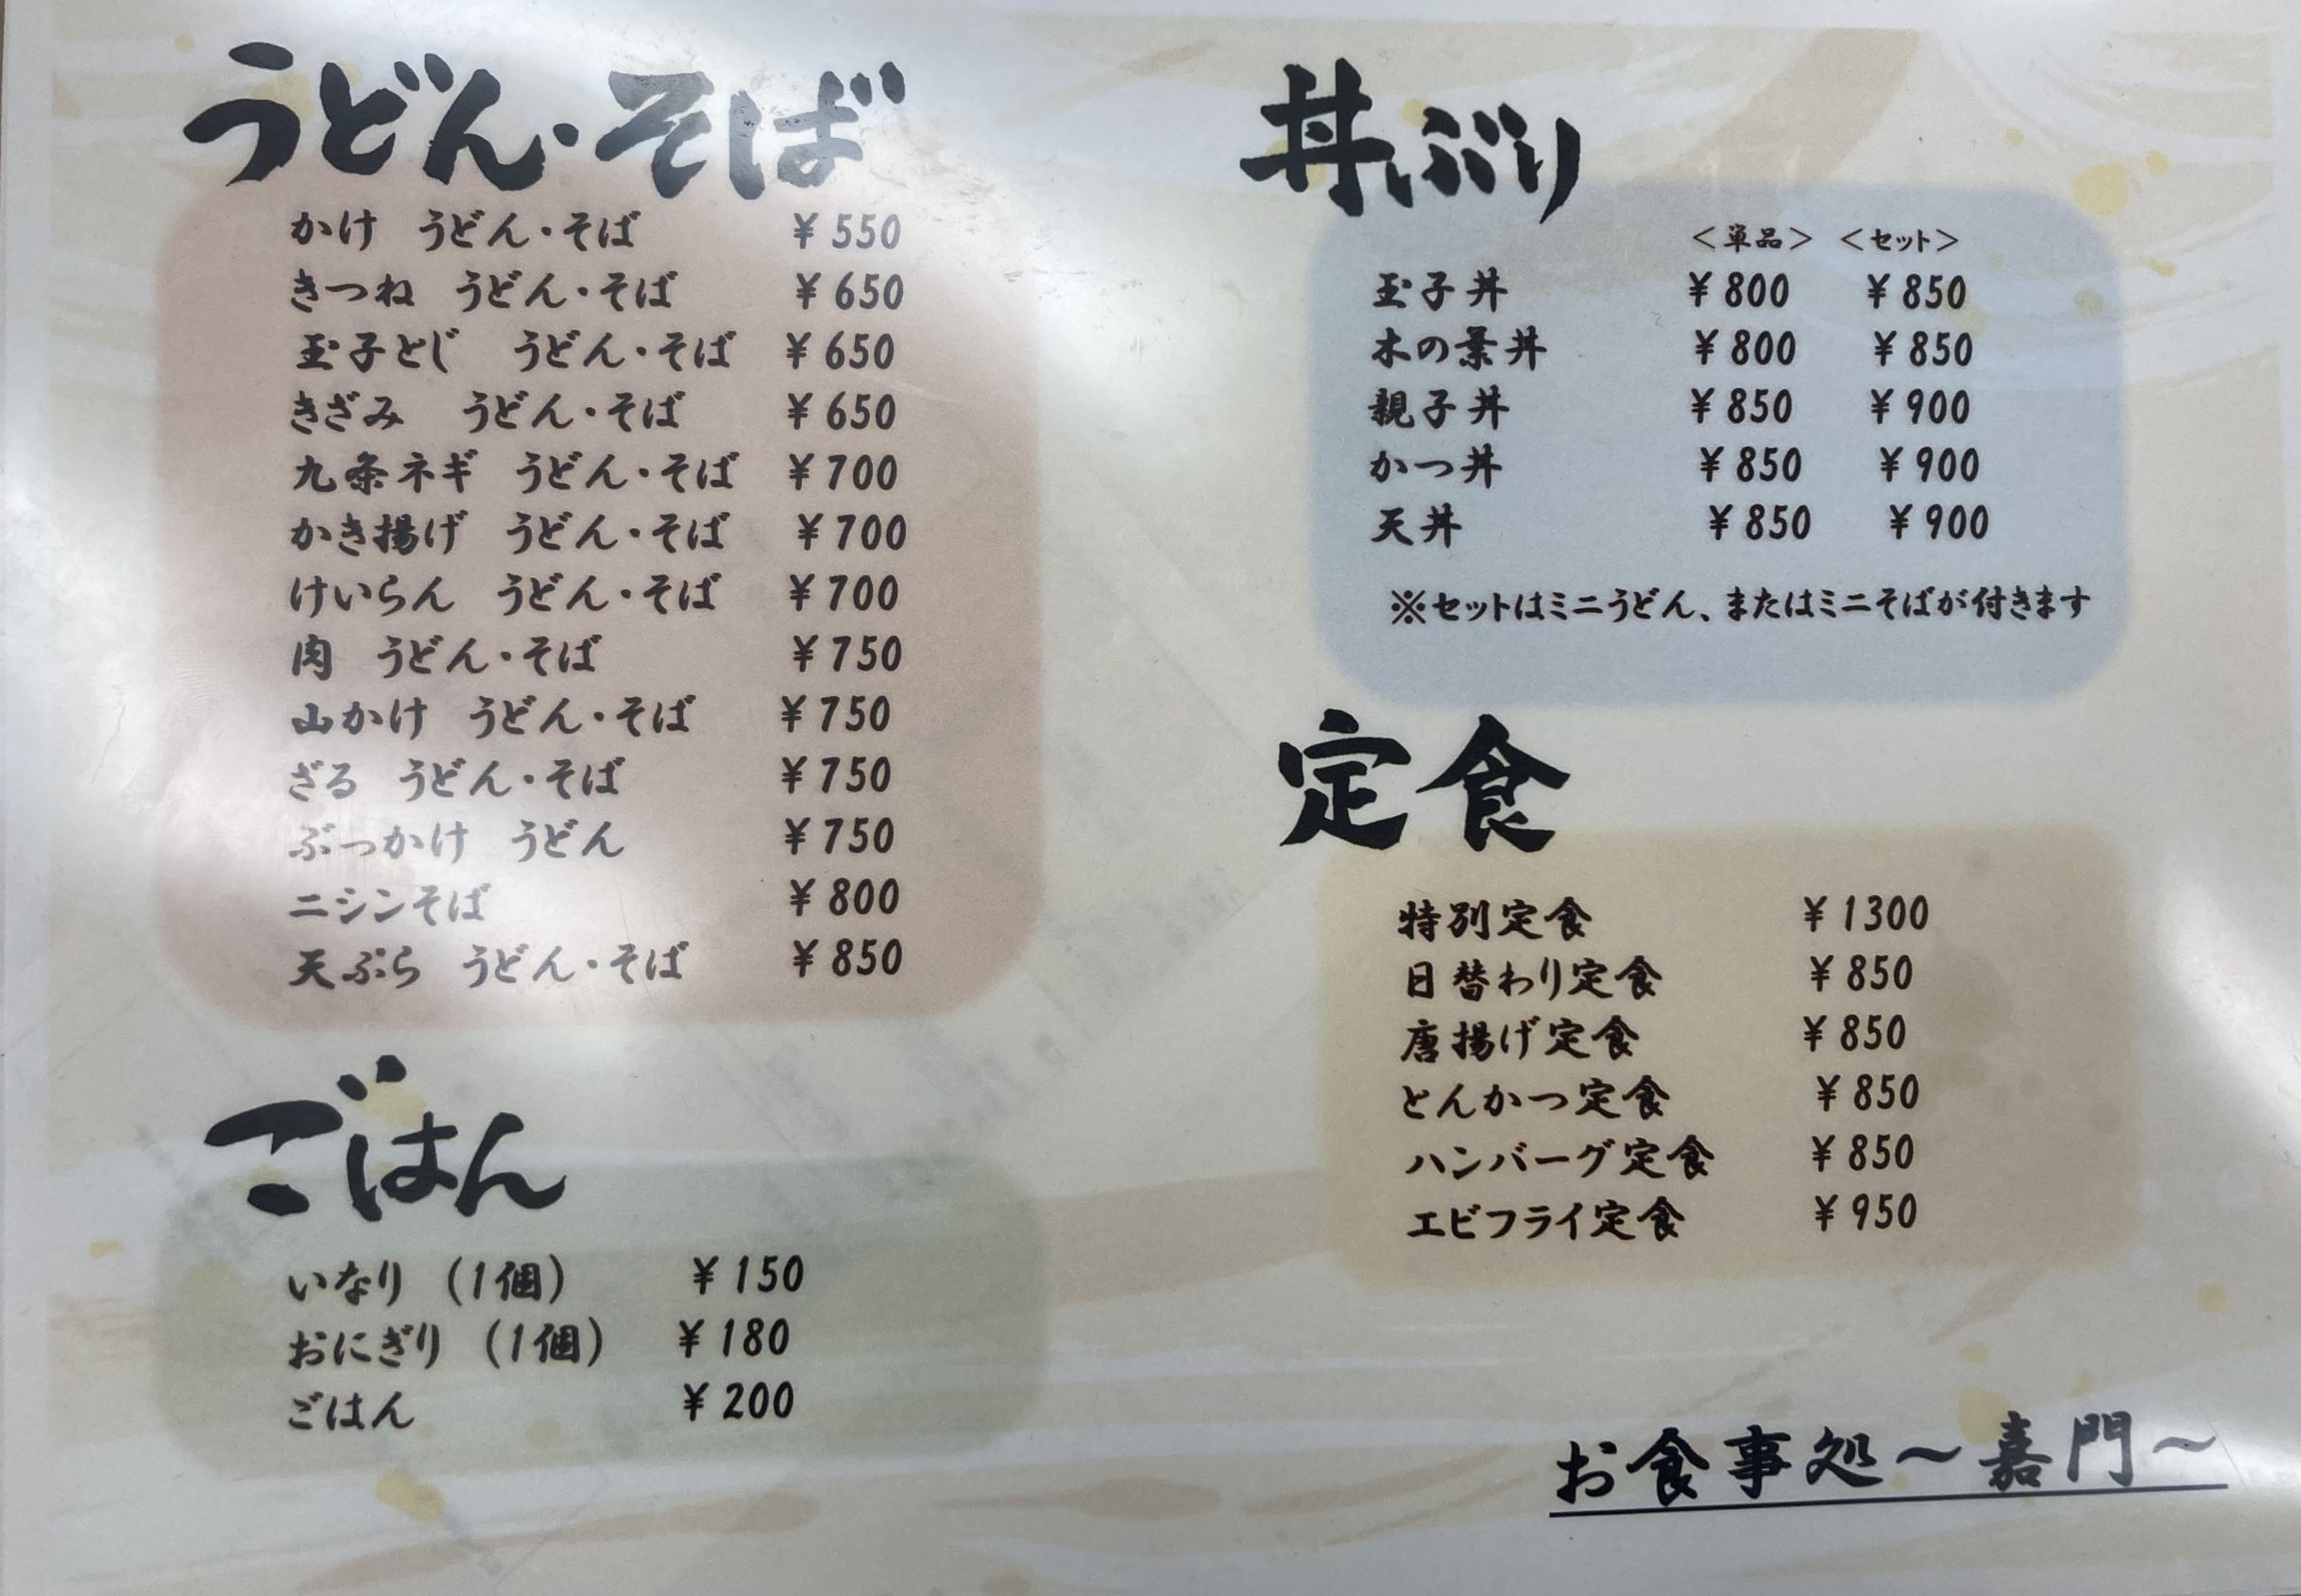 うどん・そば
かけ うどん・そば ￥550
きつね うどん・そば ￥650
玉子とじ うどん・そば ￥650
きざみ うどん・そば ￥650
九条ネギ うどん・そば ￥700
かき揚げ うどん・そば ￥700
けいらん うどん・そば ￥700
肉 うどん・そば ￥750
山かけ うどん・そば ￥750
ざる うどん・そば ￥750
ぶっかけ うどん ￥750
ニシンそば ￥800
天ぷら うどん・そば ￥850
ごはん
いなり（1個） ￥150
おにぎり（1個） ￥180
ごはん ￥200
丼ぶり
＜単品＞ ＜セット＞
玉子丼 ￥800 ￥850
木の葉丼 ￥800 ￥850
親子丼 ￥850 ￥900
かつ丼 ￥850 ￥900
天丼 ￥850 ￥900
※セットはミニうどん、またはミニそばが付きます
定食
特別定食 ￥1300
日替わり定食 ￥850
唐揚げ定食 ￥850
とんかつ定食 ￥850
ハンバーグ定食 ￥850
エビフライ定食 ￥950
お食事処～嘉門～